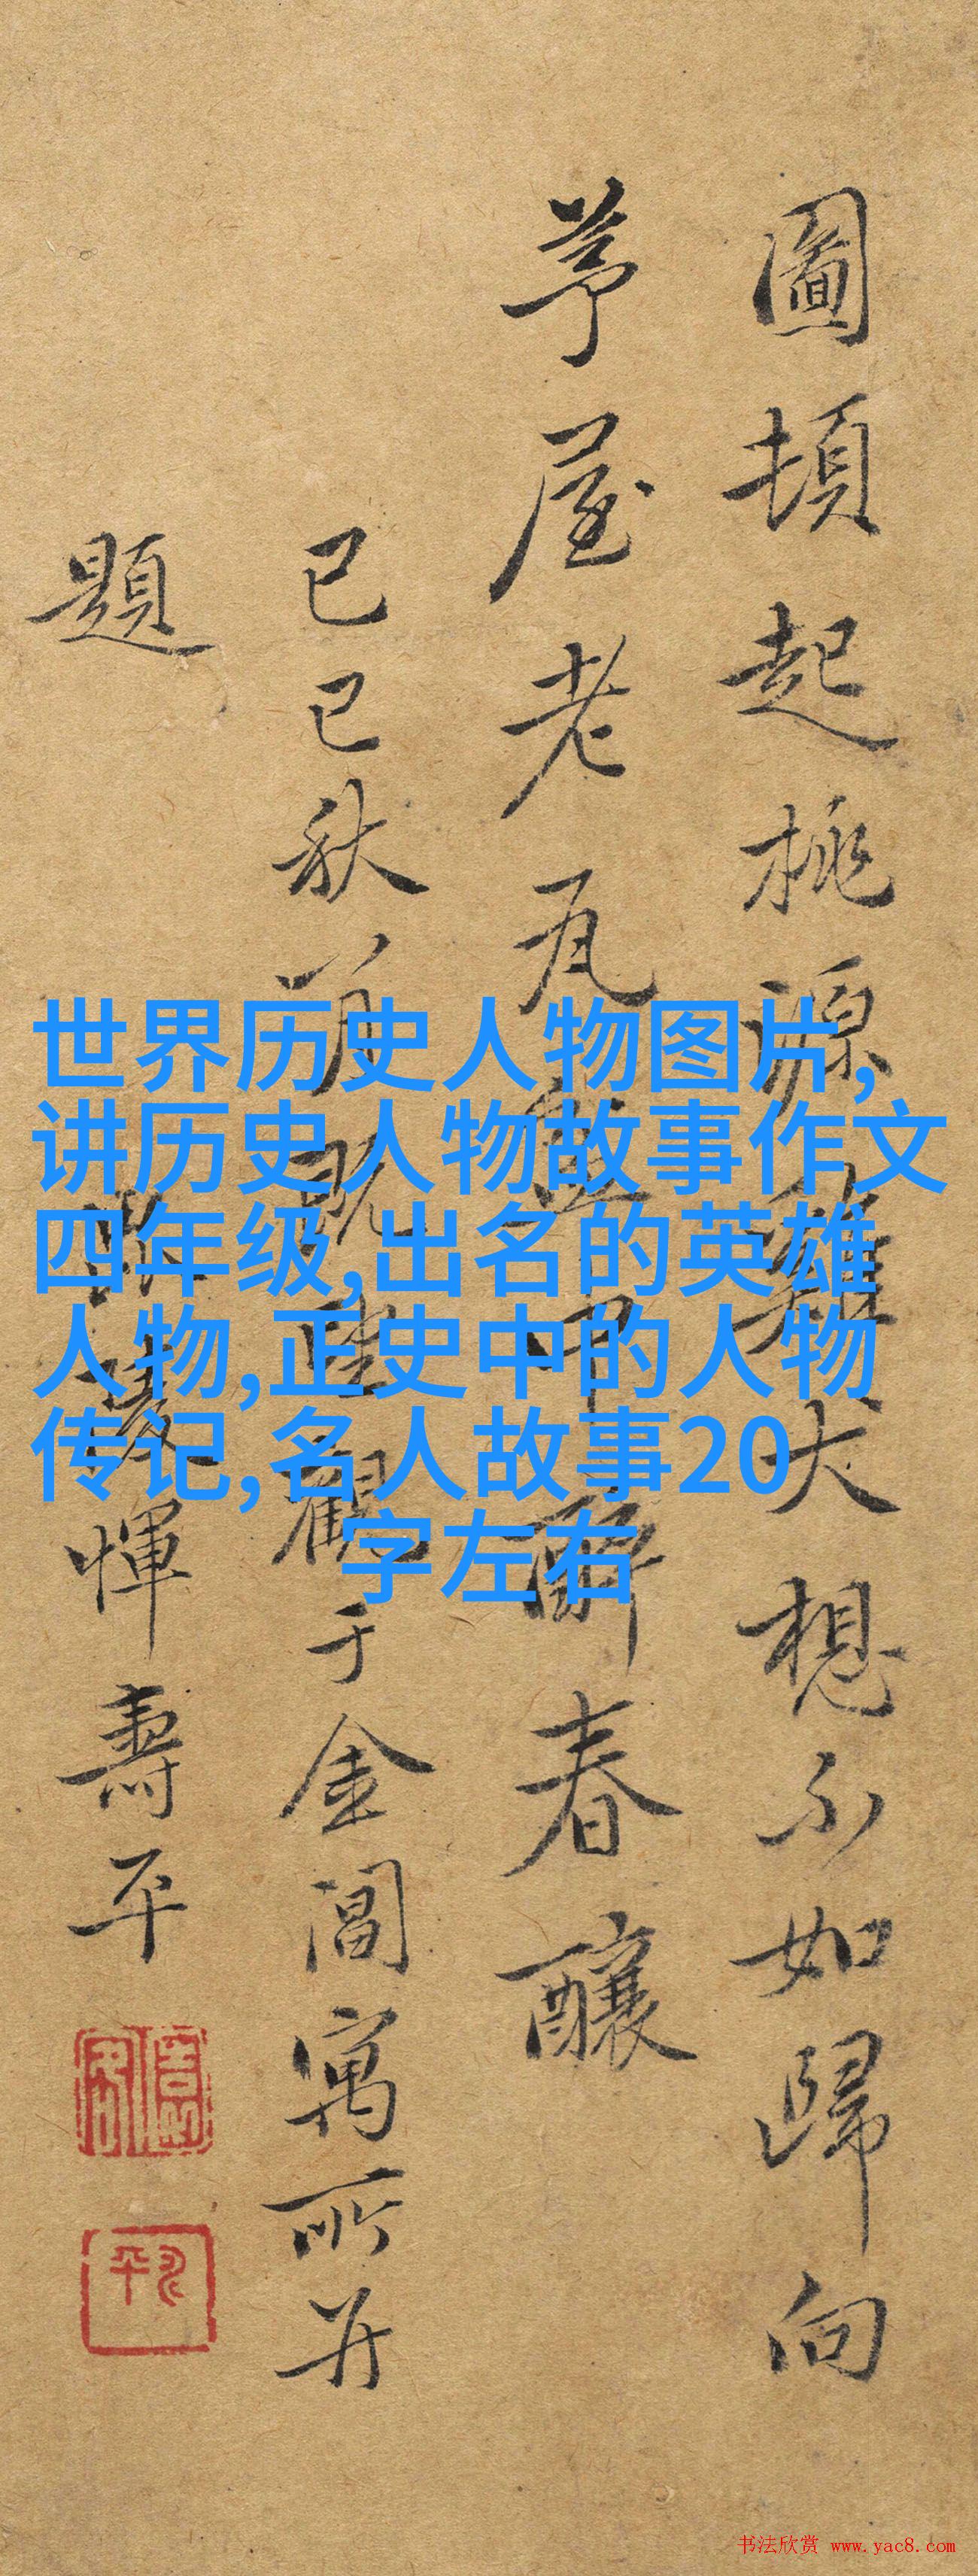 圖頓起桃源雞犬想不如歸向
茅屋老瓦盆中醉春釀
己巳秋八月既望觀于金閶寓所并
題
毗陵惲壽平
世界历史人物图片,
讲历史人物故事作文
四年级,出名的英雄
人物,正史中的人物
传记,名人故事20
字左右
书法欣赏 www.yac8.com